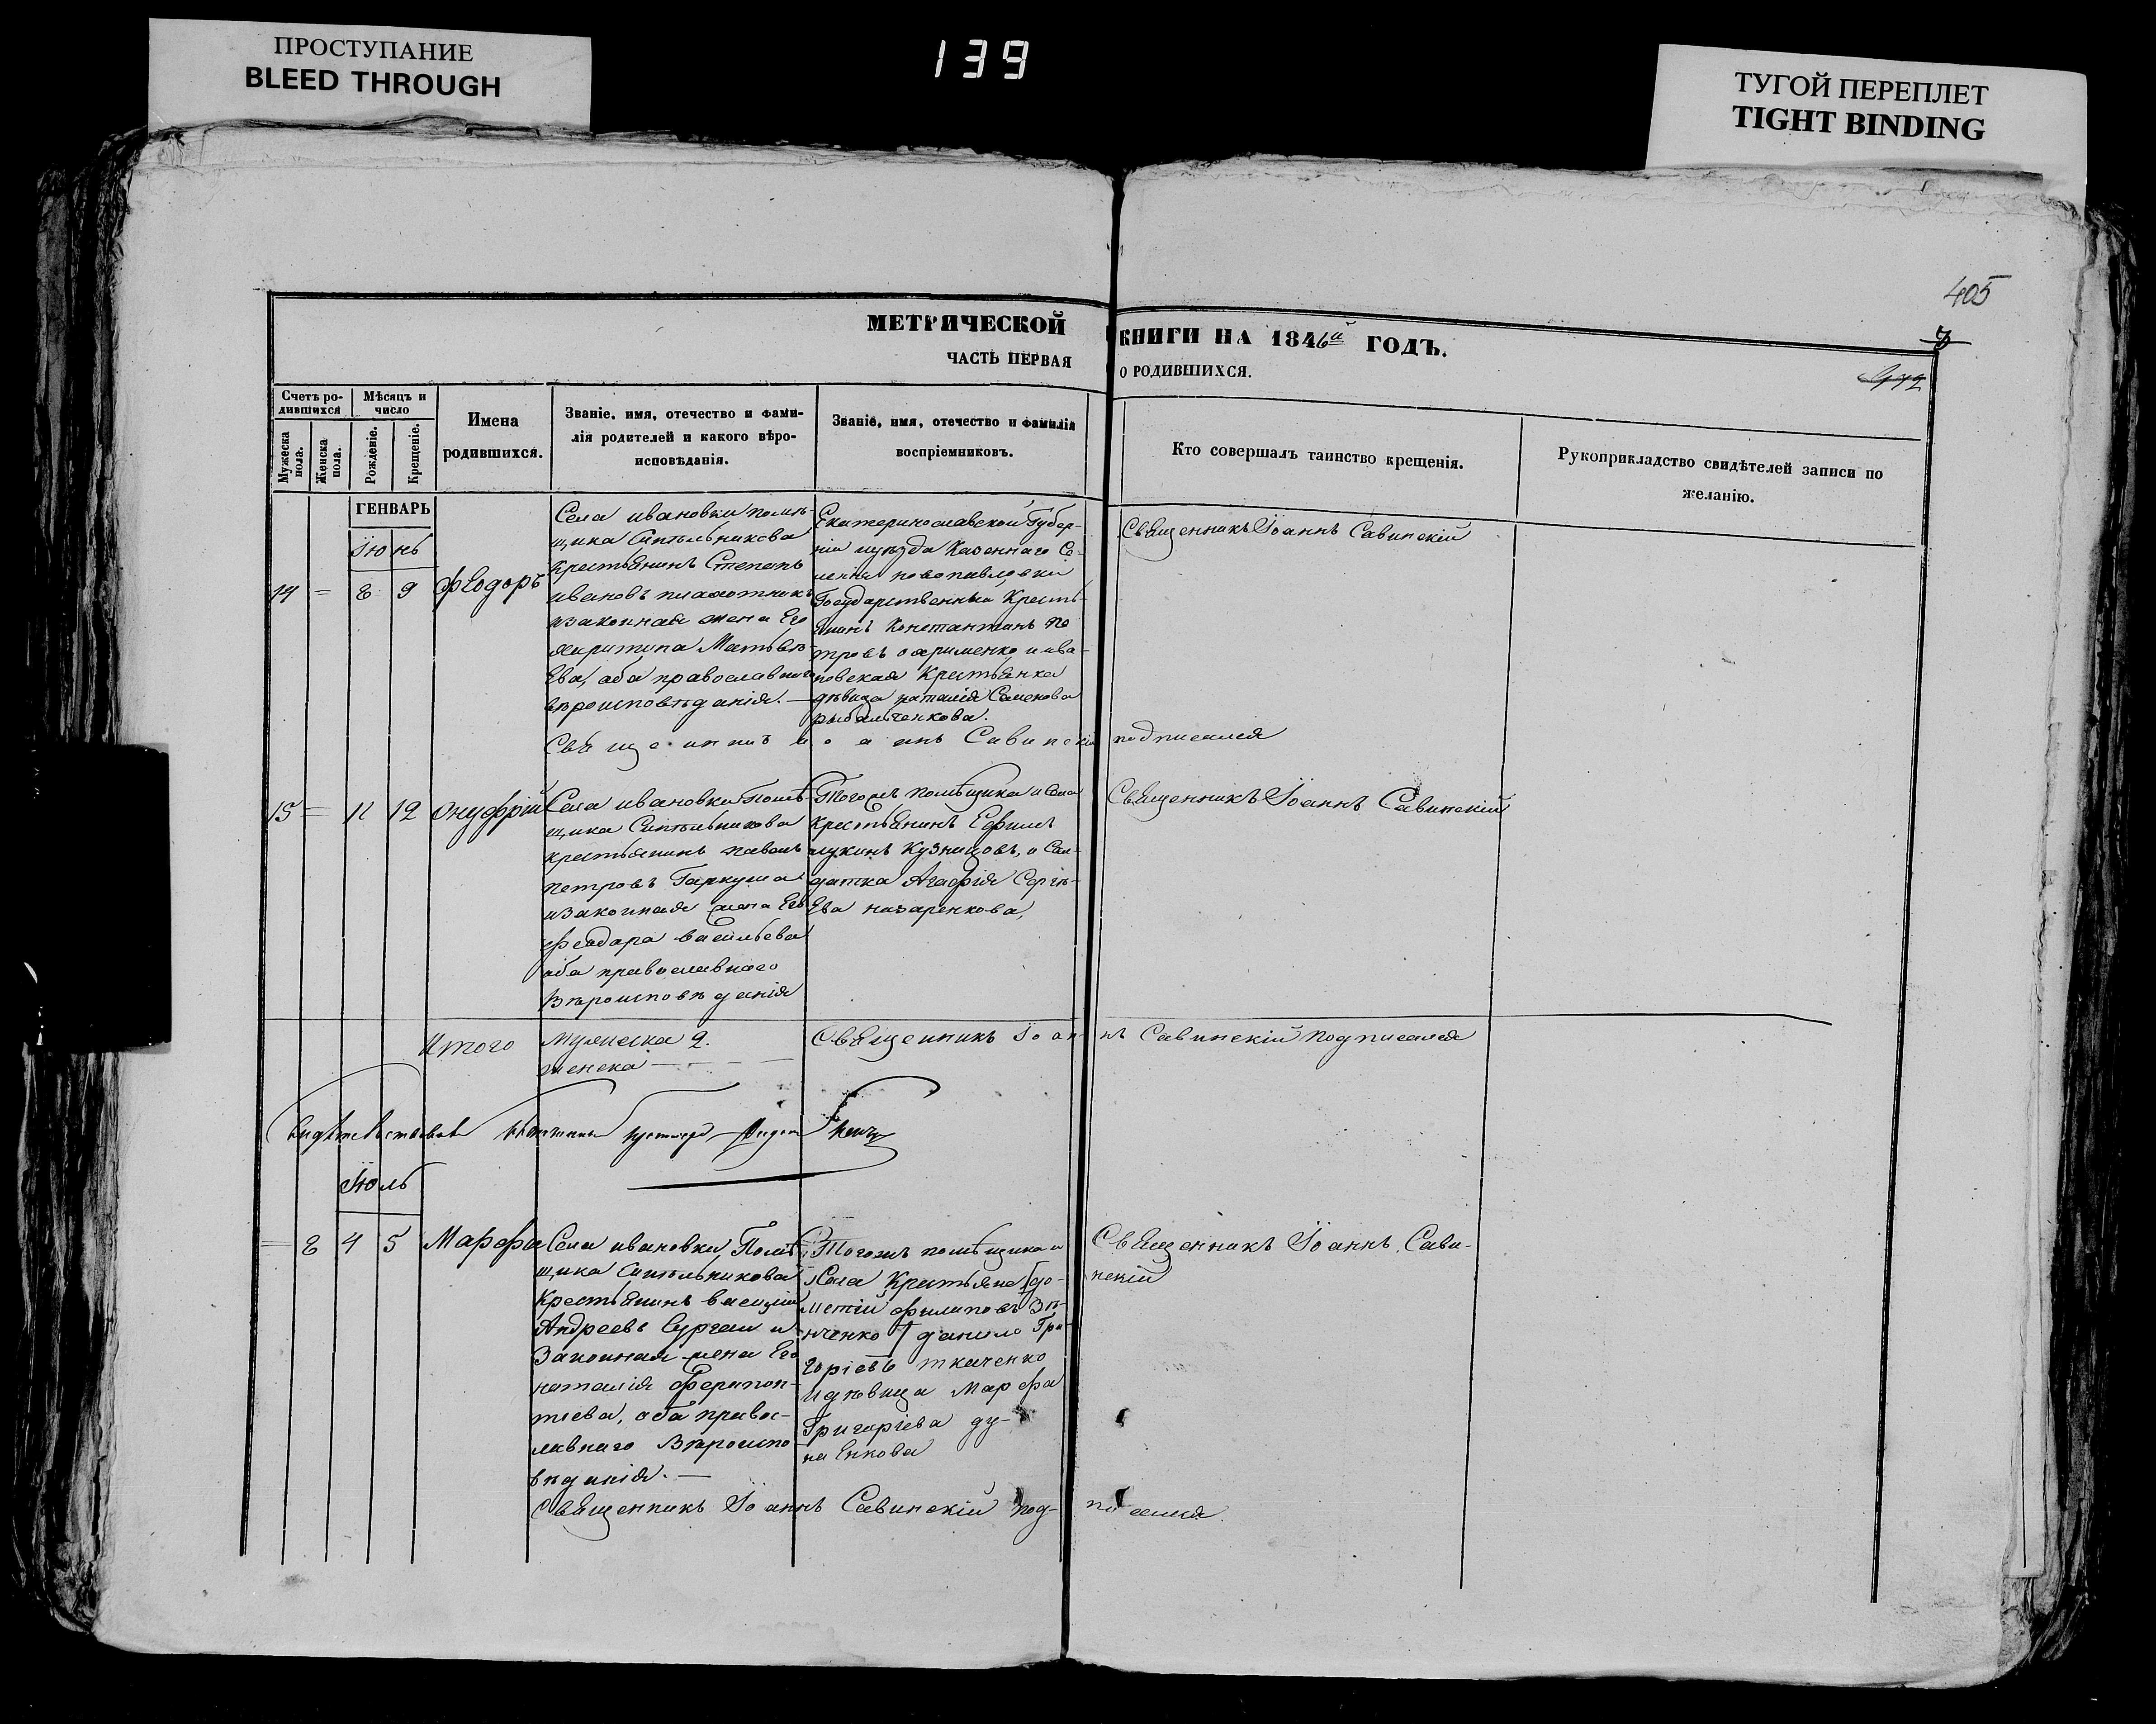 ПРОСТУПАНИЕ
BLEED THROUGH
139
ТУГОЙ ПЕРЕПЛЕТ
TIGHT BINDING
405
МЕТРИЧЕСКОЙ КНИГИ НА 1846й ГОДЪ.
ЧАСТЬ ПЕРВАЯ О РОДИВШИХСЯ.
Счетъ ро-
дившихся
Мужеска
пола.
Женска
пола.
Мѣсяцъ и
число
Рожденіе.
Крещеніе.
Имена
родившихся.
Званіе, имя, отечество и фами-
лія родителей и какого вѣро-
исповѣданія.
Званіе, имя, отечество и фамилія
воспріемниковъ.
Кто совершалъ таинство крещенія.
Рукоприкладство свидѣтелей записи по
желанію.
ГЕНВАРЬ
Іюнь
14 = 8 9 Феодоръ
Села ивановки помѣ-
щика
крестьянинъ Степанъ
ивановъ
изаконная жена Его
харитина Матвѣ-
Ева, оба православнаго
вѣроисповѣданія. —
Екатеринославской Губер-
ніи уѣзда Казеннаго Се-
ленія новопавловки
Государственный Кресть-
янинъ Константинъ Пе
тровъ охрименко, и ива-
новская Крестьянка
дѣвица наталія Семенова
рыбальченкова.
СвЯщенникъ Іоаннъ Савинскій
Священникъ иоаннъ Савинскій подписался
15 = 11 12 Онуфрій
Села ивановки Помѣ-
щика
крестьянинъ павелъ
петровъ Гаркуша
изаконная жена Его
феодора васильева
оба православнаго
Вѣроисповѣданія
Тогожъ помѣщика и Села
крестьянинъ Ефимъ
лукинъ Кузнецовъ, и Сал-
датка Агафія Сергѣ-
Ева назаренкова,
СвЯщенникъ Іоаннъ Савинскій
Итого
Мужеска 2.
женска — —
СвЯщенникъ Іоаннъ Савинскій подписался
Іюль
= 8 4 5 Марфа
Села ивановки, Помѣ-
щика
Крестьянинъ василій
Андреевъ и
Законная жена Его
наталія Ферапон-
тiева, оба правос-
лавнаго Вѣроиспо
вѣданія. —
Тогожъ помѣщика и
Села Крестьяне до-
метій филиповъ Зѣ-
нченко данило Гри-
горіевъ ткаченко
идѣвица Марфа
Григоріева ду-
на Енкова
СвЯщенникъ Іоаннъ Сави-
нскій
СвЯщенникъ Іоаннъ Савинскій под-писался